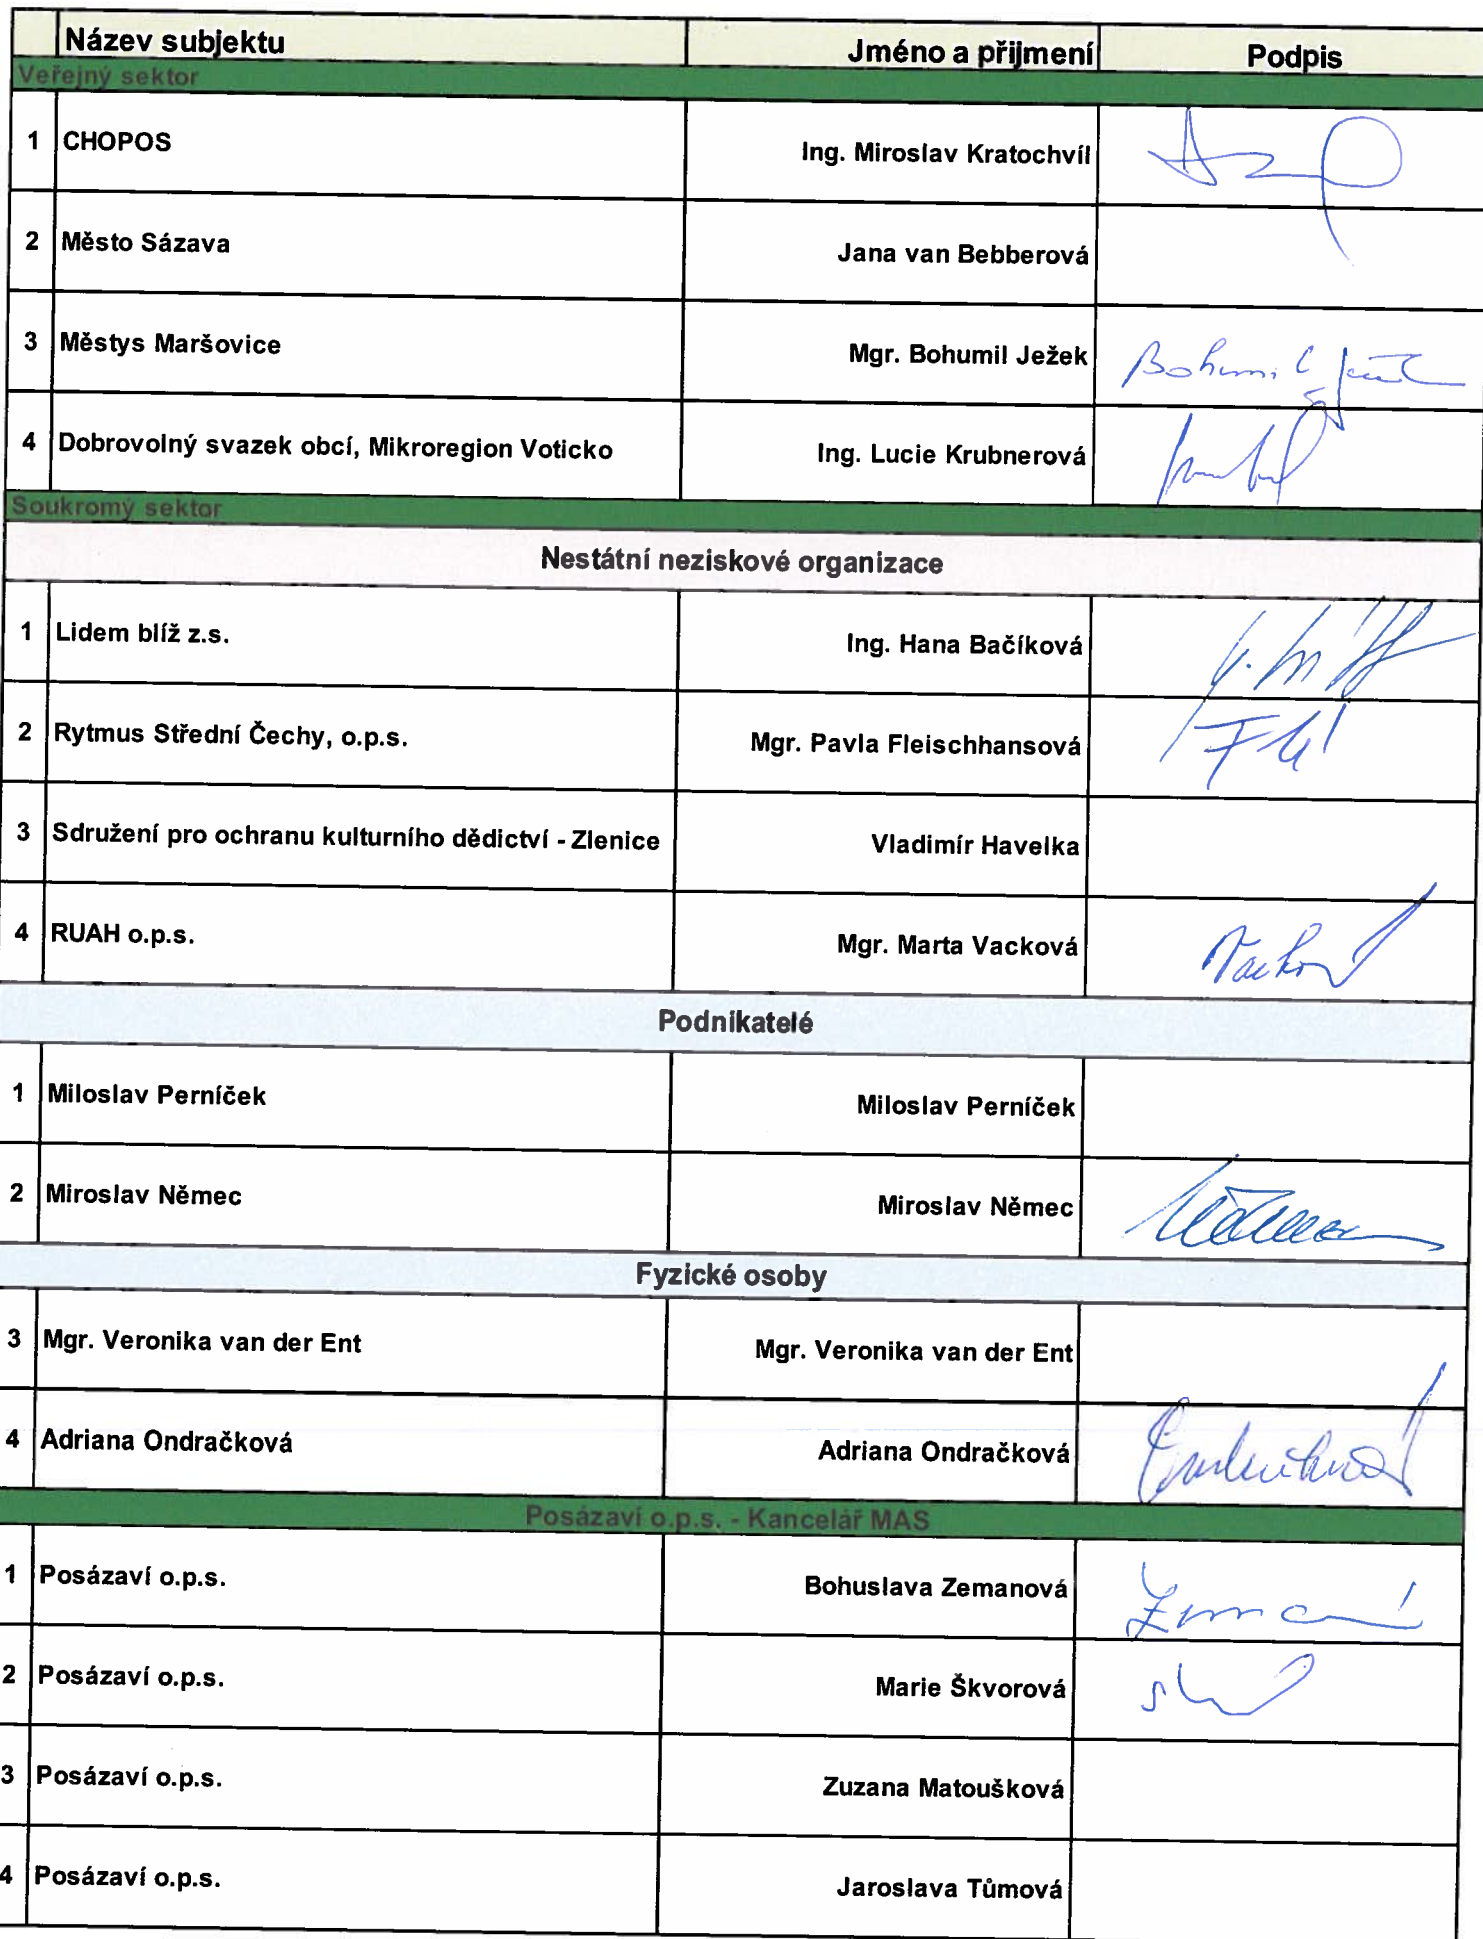 Název subjektu Jméno a přijmení Podpis
Veřejný sektor
1 CHOPOS Ing. Miroslav Kratochvíl
2 Město Sázava Jana van Bebberová
3 Městys Maršovice Mgr. Bohumil Ježek Bohumil
4 Dobrovolný svazek obcí, Mikroregion Voticko Ing. Lucie Krubnerová
Soukromý sektor
Nestátní neziskové organizace
1 Lidem blíž z.s. Ing. Hana Bačíková
2 Rytmus Střední Čechy, o.p.s. Mgr. Pavla Fleischhansová
3 Sdružení pro ochranu kulturního dědictví - Zlenice Vladimír Havelka
4 RUAH o.p.s. Mgr. Marta Vacková
Podnikatelé
1 Miloslav Perníček Miloslav Perníček
2 Miroslav Němec Miroslav Němec
Fyzické osoby
3 Mgr. Veronika van der Ent Mgr. Veronika van der Ent
4 Adriana Ondračková Adriana Ondračková
Posázaví o.p.s. - Kancelář MAS
1 Posázaví o.p.s. Bohuslava Zemanová
2 Posázaví o.p.s. Marie Škvorová
3 Posázaví o.p.s. Zuzana Matoušková
4 Posázaví o.p.s. Jaroslava Tůmová